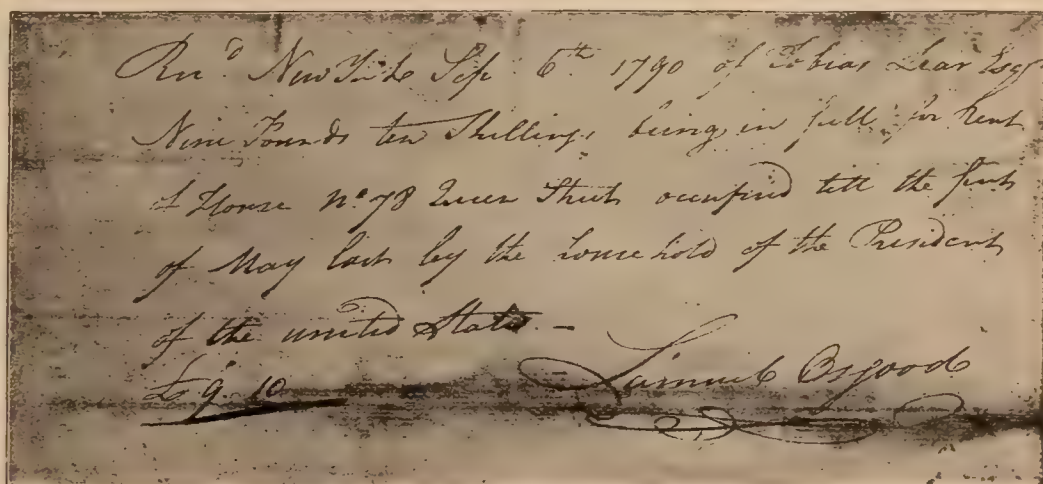 Rec.d New York Sep. 6th 1790 of Tobias Lear Esqr
Nine Pounds ten Shillings being in full for Rent
of House No 78 Queen Street occupied till the first
of May last by the household of the President
of the united States. —
£9. 10 Samuel Osgood